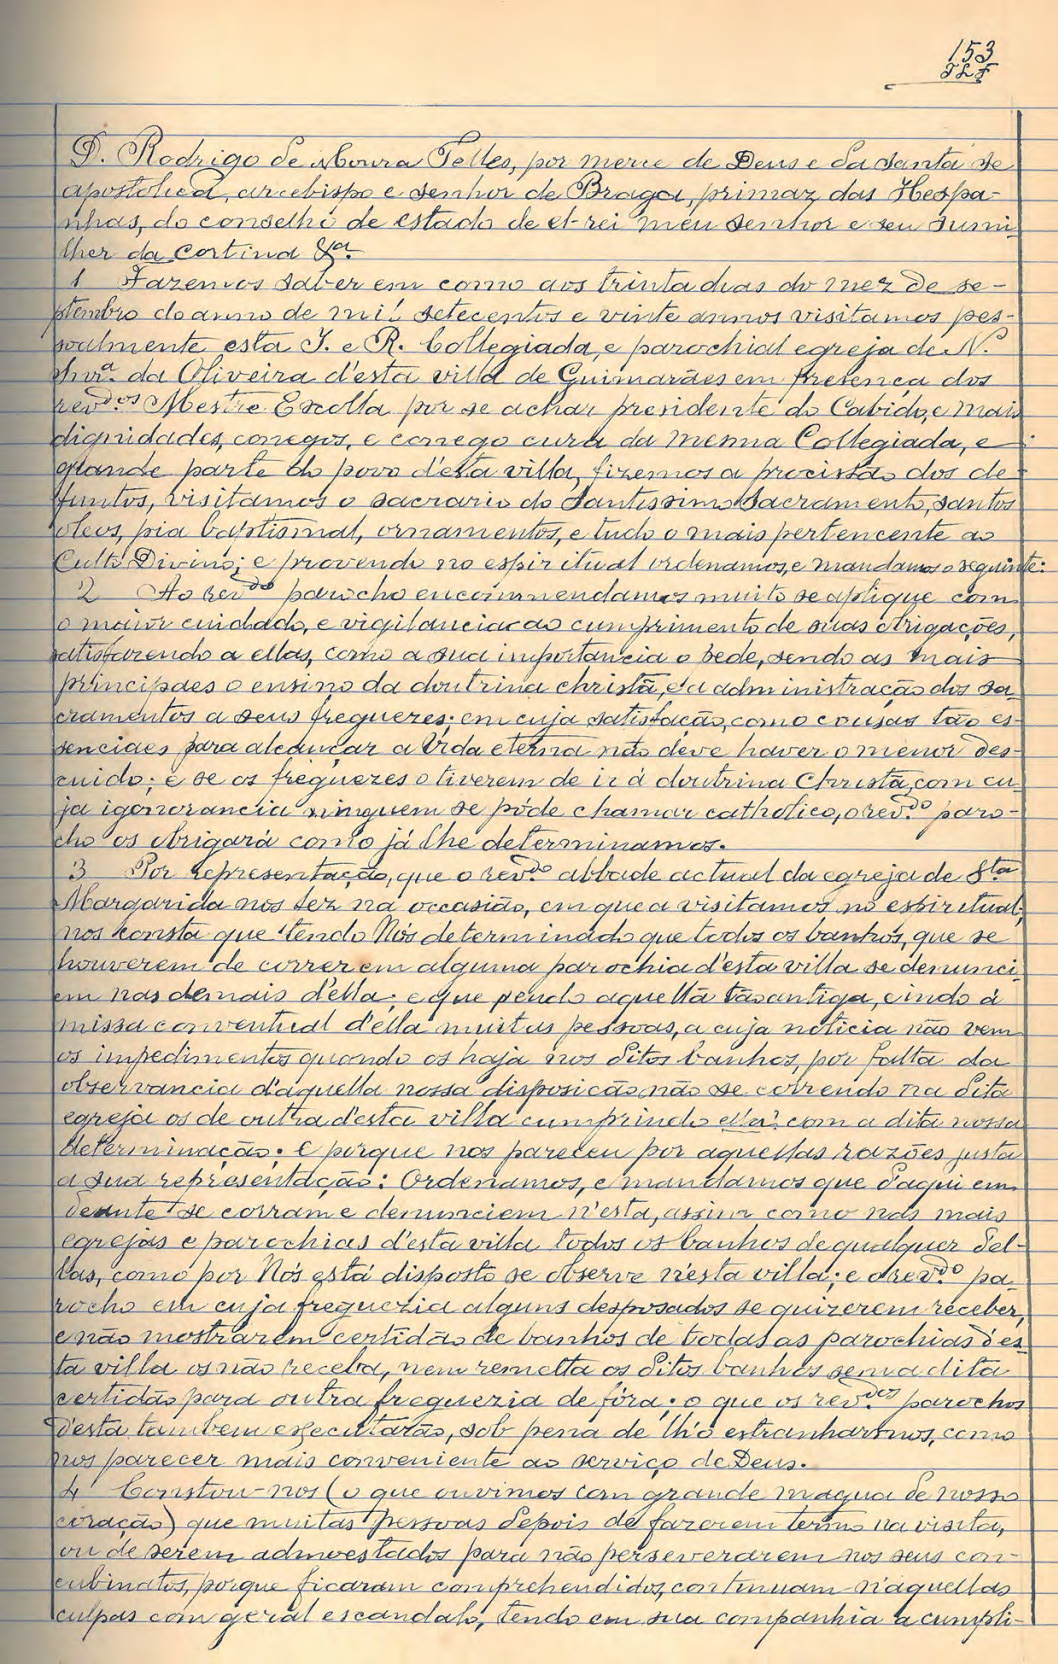 153
JLF
D. Rodrigo de Moura Telles, por merce de Deus e da santa se
apostolica, arcebispo e senhor de Braga, primaz das Hespa-
nhas, do conselho de estado de el-rei meu senhor e seu sumi-
lher da cortina &ª.
1 Fazemos saber em como aos trinta dias do mez de se-
ptembro do anno de mil setecentos e vinte annos visitamos pes-
soalmente esta I. e R. Collegiada, e parochial egreja de N.
Snrª. da Oliveira d'esta villa de Guimarães em presença dos
revdos Mestre Escolla por se achar presidente do Cabido, e mais
dignidades, conegos, e conego cura da mesma Collegiada, e
grande parte do povo d'esta villa, fizemos a procissão dos de-
funtos, visitamos o sacrario do Santissimo Sacramento, santos
oleos, pia baptismal, ornamentos, e tudo o mais pertencente ao
Culto Divino; e provendo no espiritual ordenamos, e mandamos o seguinte:
2 Ao revdo parocho encommendamos muito se aplique com
o maior cuidado, e vigilancia ao cumprimento de suas obrigações,
satisfazendo a ellas, como a sua importancia o pede, sendo as mais
principaes o ensino da doutrina christã, e a administração dos sa-
cramentos a seus freguezes; em cuja satisfação, como cousas tão es-
senciaes para alcançar a vida eterna não deve haver o menor des-
cuido; e se os freguezes o tiverem de ir á doutrina Christã, com cu-
ja igonorancia ninguem se póde chamar catholico, o revdo paro-
cho os obrigará como já lhe determinamos.
3 Por representação, que o revdo abbade actual da egreja de Sta
Margarida nos fez na occasião, em que a visitamos no espiritual,
nos consta que tendo Nós determinado que todos os banhos, que se
houverem de correr em alguma parochia d'esta villa se denunci-
em nas demais d'ella; e que sendo aquella tão antiga, e indo á
missa conventual d'ella muitas pessoas, a cuja noticia não vem
os impedimentos quando os haja nos ditos banhos, por falta da
observancia d'aquella nossa disposição, não se correndo na dita
egreja os de outra d'esta villa cumprindo ella com a dita nossa
determinação; E porque nos pareceu por aquellas razões justa
a sua representação: Ordenamos, e mandamos que d'aqui em
deante se corram e denunciem n'esta, assim como nas mais
egrejas e parochias d'esta villa todos os banhos de qualquer del-
las, como por Nós está disposto se observe n'esta villa; e o revdo pa-
rocho em cuja freguezia alguns desposados se quizerem receber,
e não mostrarem certidão de banhos de todas as parochias d'es-
ta villa os não receba, nem remetta os ditos banhos sem a dita
certidão para outra freguezia de fóra; o que os revdos parochos
d'esta tambem executarão, sob pena de lh'o estranharmos, como
nos parecer mais conveniente ao serviço de Deus.
4 Constou-nos (o que ouvimos com grande magua de nosso
coração) que muitas pessoas depois de fazerem termo na visita,
ou de serem admoestados para não perseverarem nos seus con-
cubinatos, porque ficaram comprehendidos, continuam n'aquellas
culpas com geral escandalo, tendo em sua companhia a cumpli-